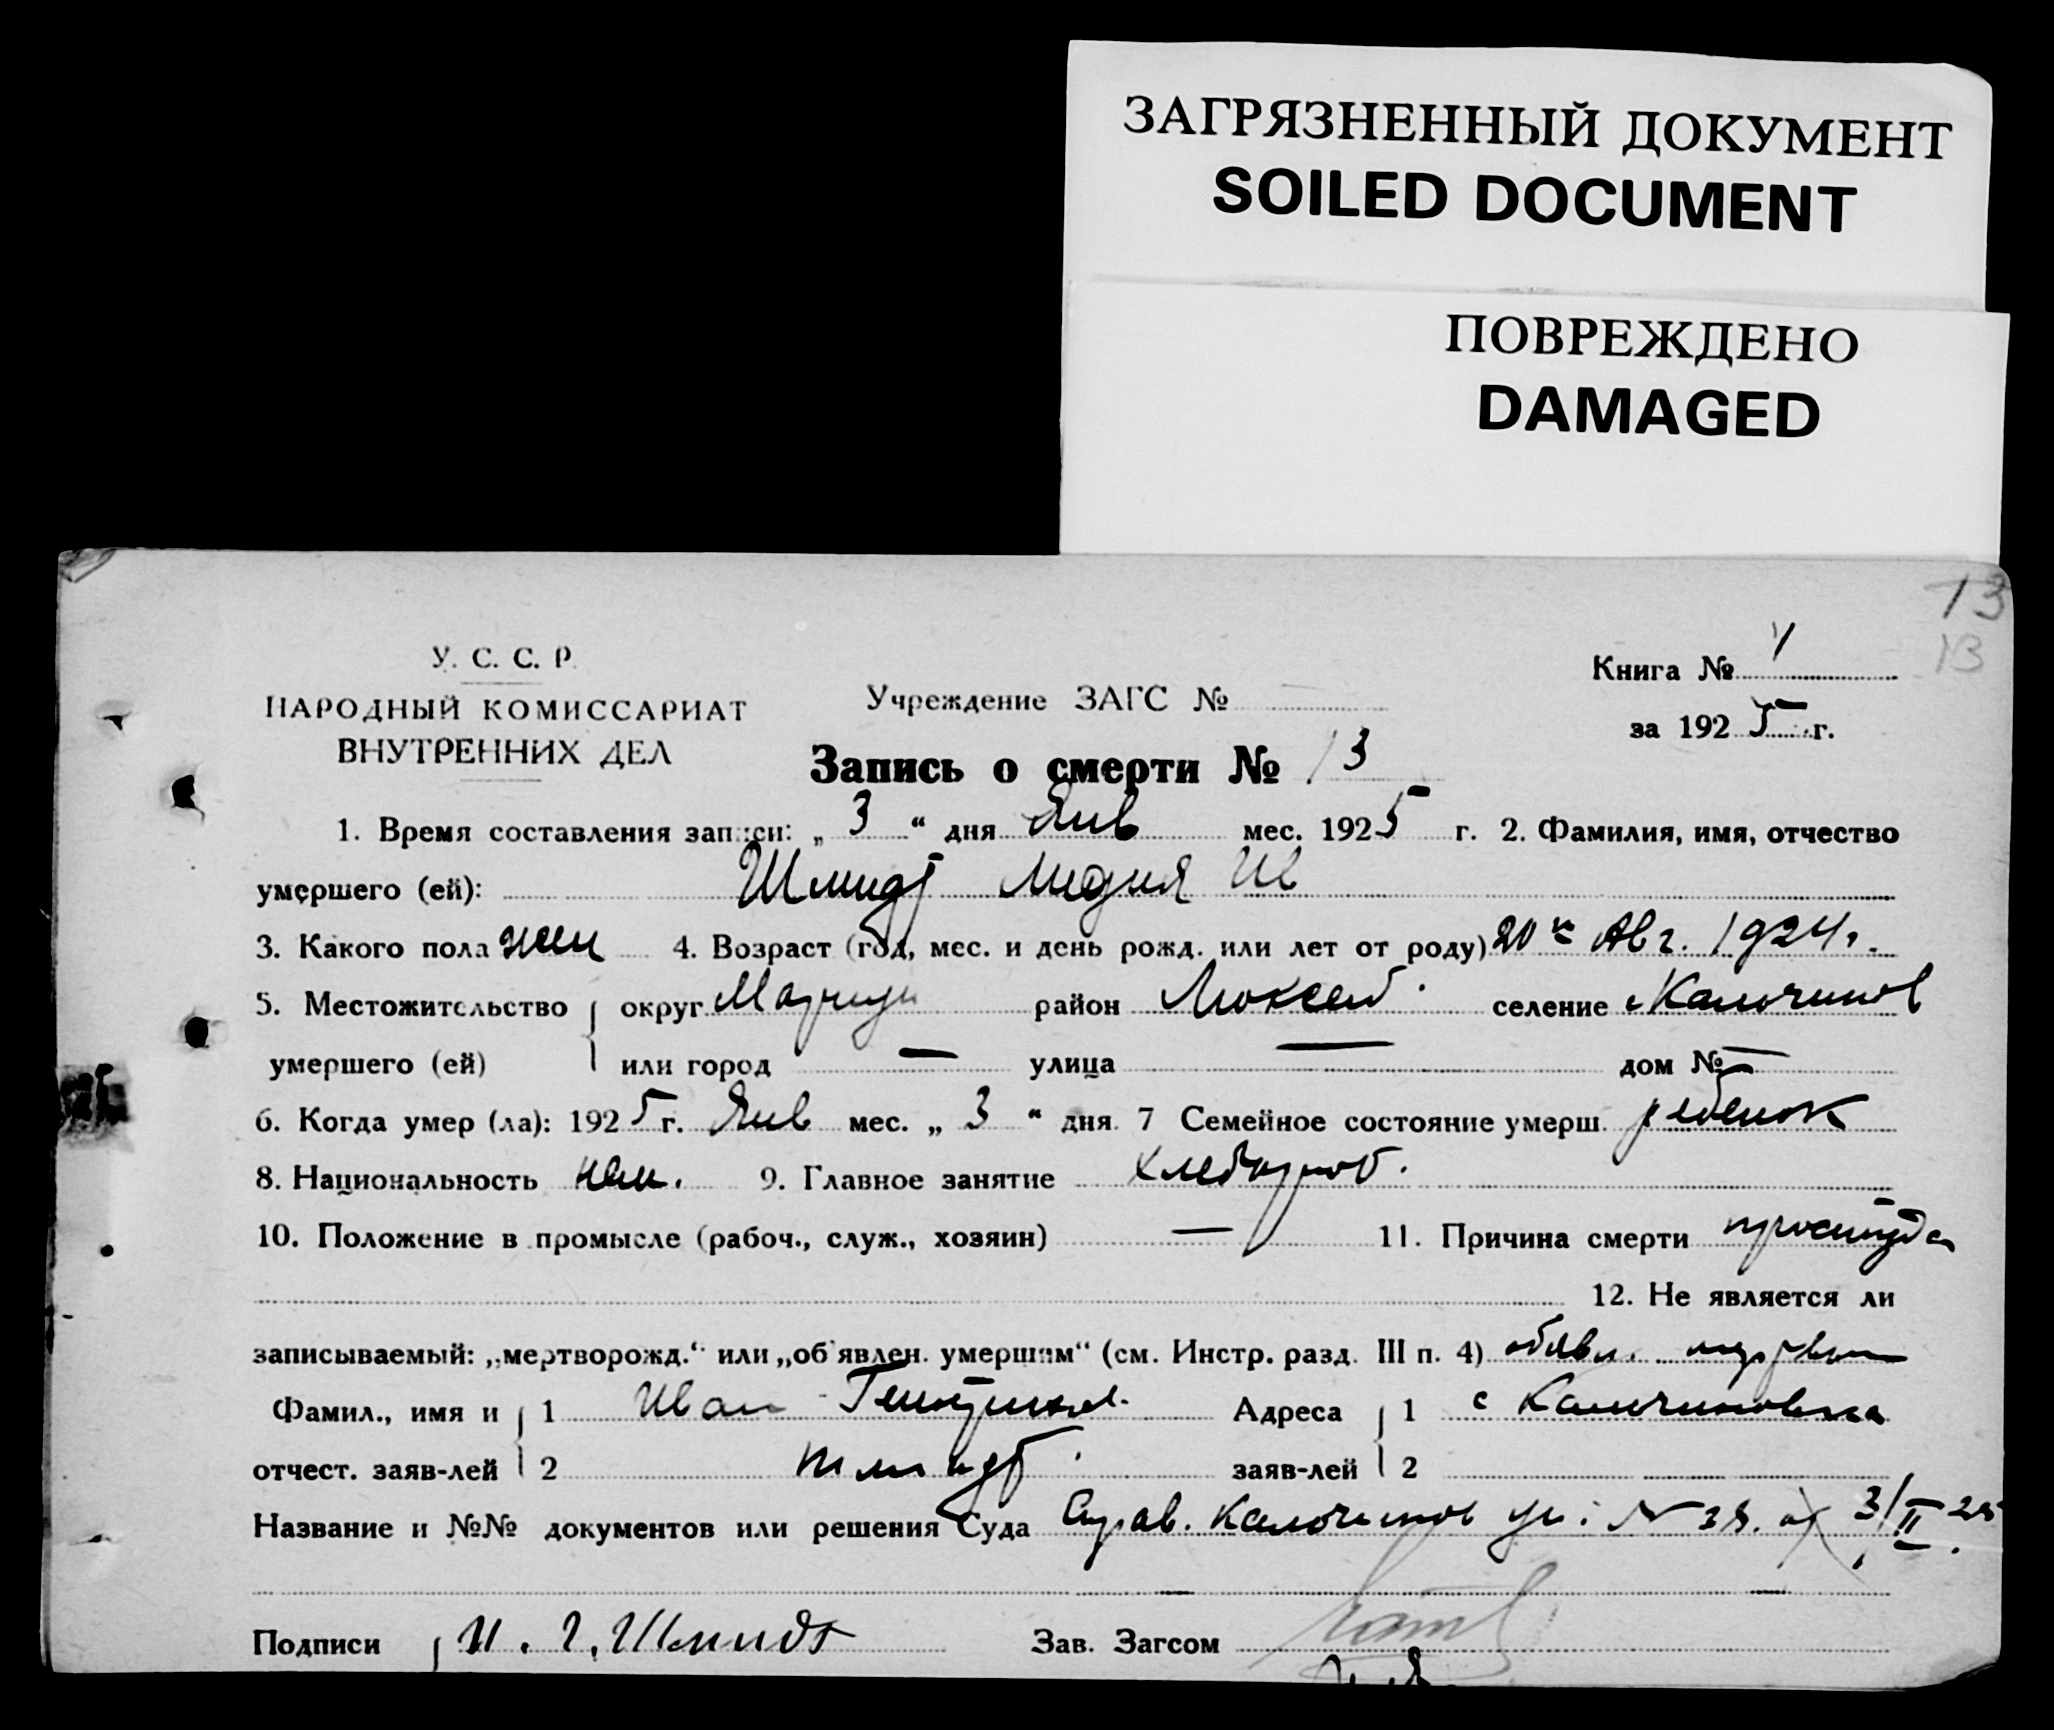 ЗАГРЯЗНЕННЫЙ ДОКУМЕНТ
SOILED DOCUMENT
ПОВРЕЖДЕНО
DAMAGED
13
13
У. С. С. Р.
НАРОДНЫЙ КОМИССАРИАТ
ВНУТРЕННИХ ДЕЛ
Учреждение ЗАГС №
Книга № 1
за 1925 г.
Запись о смерти № 13
1. Время составления записи: „ 3 “ дня Янв мес. 1925 г. 2. Фамилия, имя, отчество
умершего (ей): Шмидт Лидия Ив
3. Какого пола жен 4. Возраст (год, мес. и день рожд. или лет от роду) 20 Авг. 1924 г.
5. Местожительство округ район Люксемб. селение
умершего (ей) или город — улица — дом № —
6. Когда умер (ла): 1925 г. Янв мес. „ 3 “ дня. 7 Семейное состояние умерш. ребенок
8. Национальность нем. 9. Главное занятие хлебороб.
10. Положение в промысле (рабоч., служ., хозяин) — 11. Причина смерти простуда
12. Не является ли
записываемый: „мертворожд.“ или „об'явлен. умершим“ (см. Инстр. разд. III п. 4) обявл.
Фамил., имя и 1 Иван Адреса 1 с
отчест. заяв-лей 2 Шмидт заяв-лей 2
Название и №№ документов или решения Суда Справ. № 38. от 3/II 25
Подписи И. Г. Шмидт Зав. Загсом